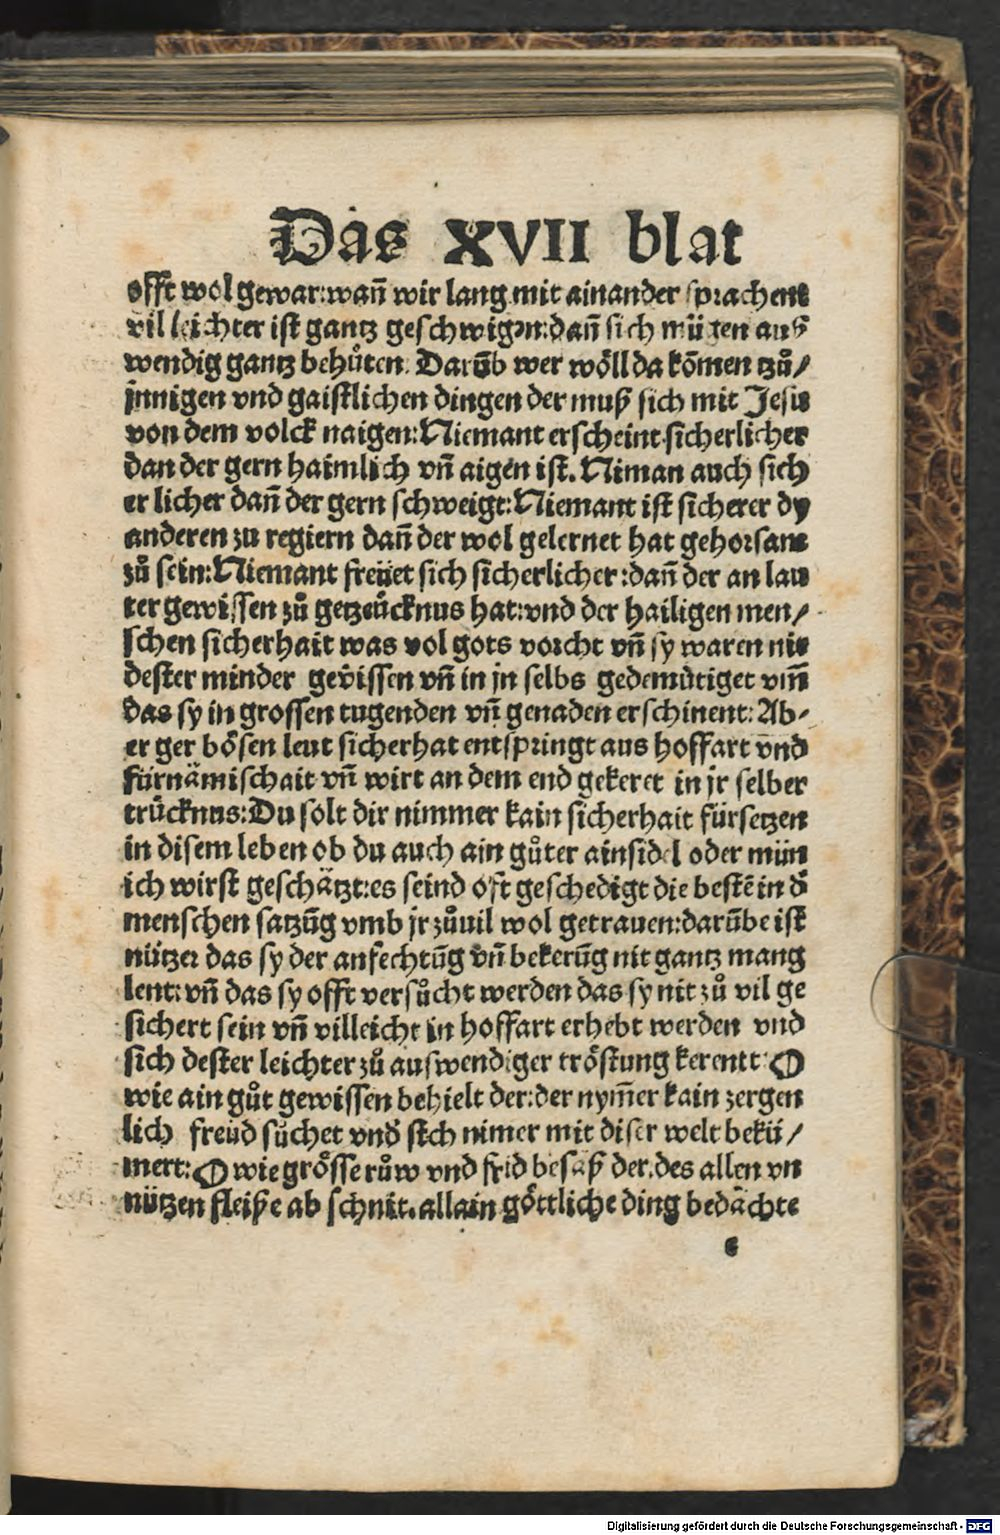 Das XVII blat
offt wol gewar:wañ wir lang mit ainander sprachent
vil leichter ist gantz geschwigen:dañ sich mügen auß
wendig gantz behůten. Darūb wer wöll da kōmen tzů/
jnnigen vnd gaistlichen dingen der muß sich mit Jesu
von dem volck naigen:Niemant erscheint sicherlicher
dan der gern haimlich vñ aigen ist. Niman auch sich
er licher dañ der gern schweigt:Niemant ist sicherer dy
anderen zu regiern dañ der wol gelernet hat gehorsam
zů sein:Niemant freüet sich sicherlicher:dañ der an lau
ter gewissen zů getzeücknus hat:vnd der hailigen men/
schen sicherhait was vol gots vorcht vñ sy waren nie
dester minder gevissen vñ in jn selbs gedemütiget vm̄
das sy in grossen tugenden vñ genaden erschinent: Ab-
er ger bösen leut sicherhat entspringt aus hoffart vnd
fürnämischait vñ wirt an dem end gekeret in jr selber
trücknus:Du solt dir nimmer kain sicherhait fürsetzen
in disem leben ob du auch ain gůter ainsidel oder mün
ich wirst geschätzt:es seind oft geschedigt die bestē in d̄
menschen satzūg vmb jr zůuil wol getrauen:darūbe ist
nützer das sy der anfechtūg vñ bekerūg nit gantz mang
lent:vñ das sy offt versůcht werden das sy nit zů vil ge
sichert sein vñ villeicht in hoffart erhebt werden vnd
sich dester leichter zů auswendiger tröstung kerentt:O
wie ain gůt gewissen behielt der:der nym̄er kain zergen
lich freüd sůchet vnd sich nimer mit diser welt bekü/
mert:O wie grösse růw vnd frid besaß der.des allen vn
nützen fleiße ab schnit.allain göttliche ding bedächte
e
Digitalisierung gefördert durch die Deutsche Forschungsgemeinschaft - DFG